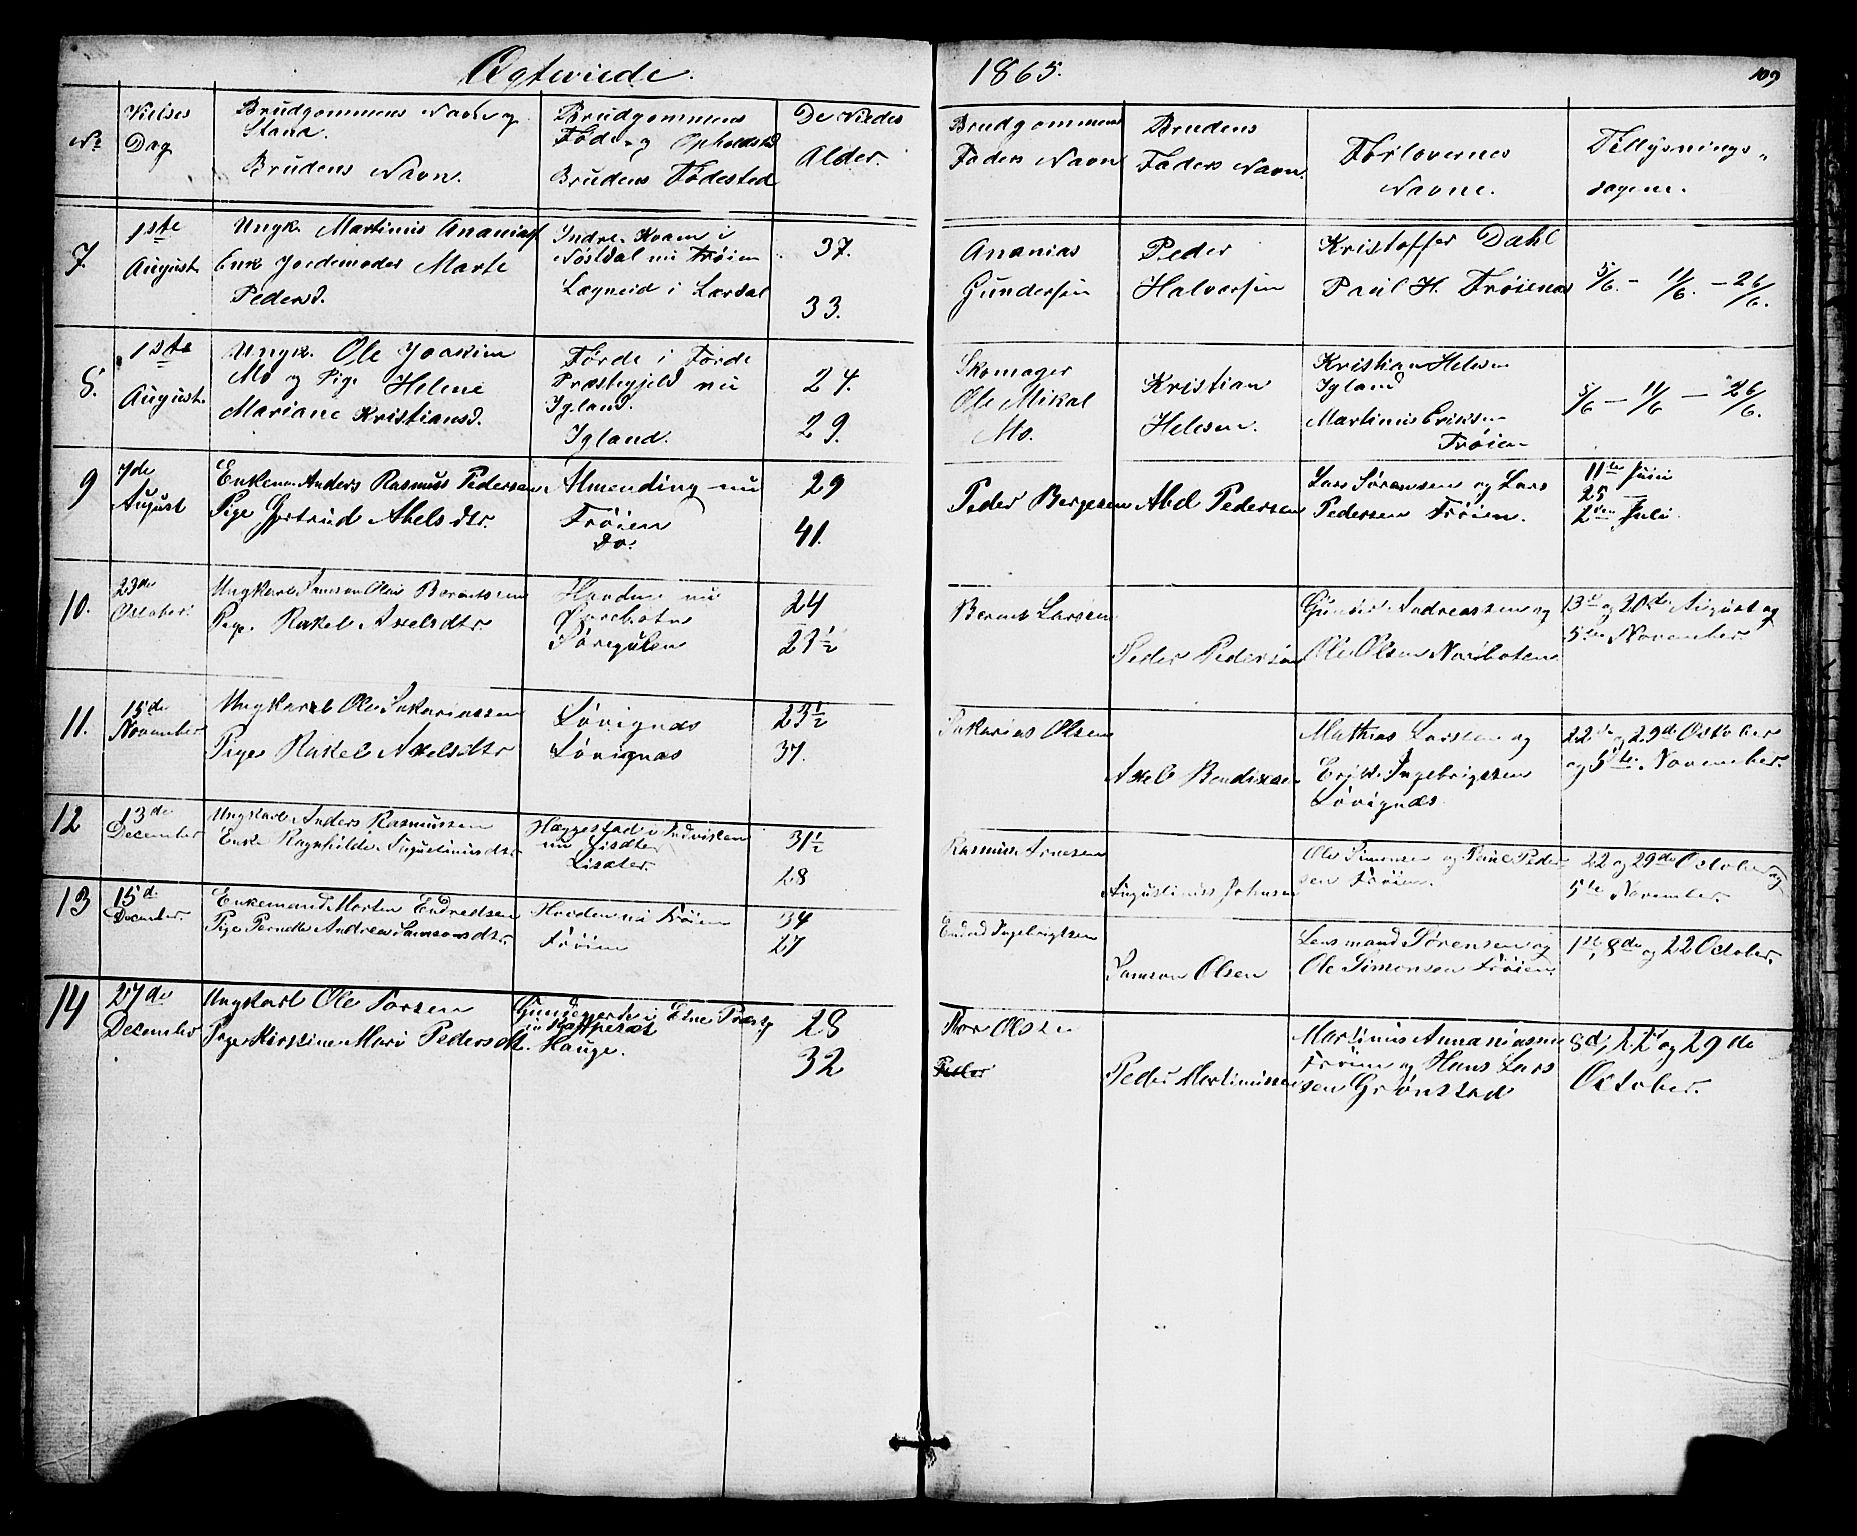 Ægteviede. 1865. 109
No
Vielses Dag
Brudgommens Navn og Stand.
Brudens Navn.
Brudgommens Føde- og Opholdsted
Brudens Fødested
De Viedes Alder.
Brudgommens Faders Navn
Brudens Faders Navn.
Forlovernes Navne.
Tillysnings-dagene.
7. 1ste August
Ungk. Martinus Ananias
Enk Jordemoder Marte
Pedersd.
Indre Kvam i
Nøstdal nu Frøien
Lægreid i Lærdal
37.
33.
Ananias
Gundersen
Peder
Halvorsen
Kristoffer Dahl
Paul H. Frøienes
5/6. - 11/6. - 26/6.
8. 1ste August.
Ungk. Ole Joakim
Mo og Pige Helene
Mariane Kristiansd.
Førde i Førde
Præstegjeld nu
Igland.
Igland.
24.
29.
Skomager
Ole Mikal
Mo.
Kristian
Helesen.
Kristian Helesen
Igland
Martinus Eriksen
Frøien
5/6 - 11/6 - 26/6.
9 7de August
Enkem Anders Rasmus Pedersen
Pige Gertrud Abelsdtr.
Almending nu
Frøien
Do.
29
41.
Peder Bergesen
Abel Pedersen
Lars Sørensen og Lars
Pedersen Frøien.
11te Juni
25 -
2den Juli
10. 23de October
Ungkarl Samson Olai Berentsen
Pige. Rakel Axelsdtr.
Hovden nu
Sørgulen
24
23½
Berent Larsen
Peder Pedersen
Gunder Andreassen og
Ole Olsen Nordboten
13de og 20de August og
5te November
11. 15de November
Ungkarl Ole Sakariassen
Pige Rakel Axelsdtr
Løvignæs
Løvignæs
23½
37.
Sakarias Olsen
Axel Bendixsen
Mathias Larsen og
Erik Ingebrigtsen
Løvignæs.
22de og 29de October
og 5te November.
12 13de December
Ungkarl Anders Rasmussen
Enke Ragnhilde Augustinusdtr
Hæggestad i Indviken
nu Lisæter
Lisæter.
31½
28
Rasmus Arnesen
Augustinus Johnsen
Ole Simonsen og Paul Peder
sen Frøien.
22 og 29de October og
5te November.
13 15d. December
Enkemand Morten Endredsen
Pige Pernelle Andrea Samsonsdtr.
Hovden nu Frøien
Frøien
34
27
Endred Ingebrigtsen
Samson Olsen
Lensmand Sørensen og
Ole Simonsen Frøien
1ste, 8de og 22 October.
14 27de December
Ungkarl Ole Torsen
Pige Kirstine Mari Pedersdtr.
i Etne Præstg
Hauge.
28
32
Thor Olsen
Peder
Peder Martinussen
Martinus Annaniasen
Frøien og Hans Lars
sen Grønstad
8d, 22d og 29de
October.